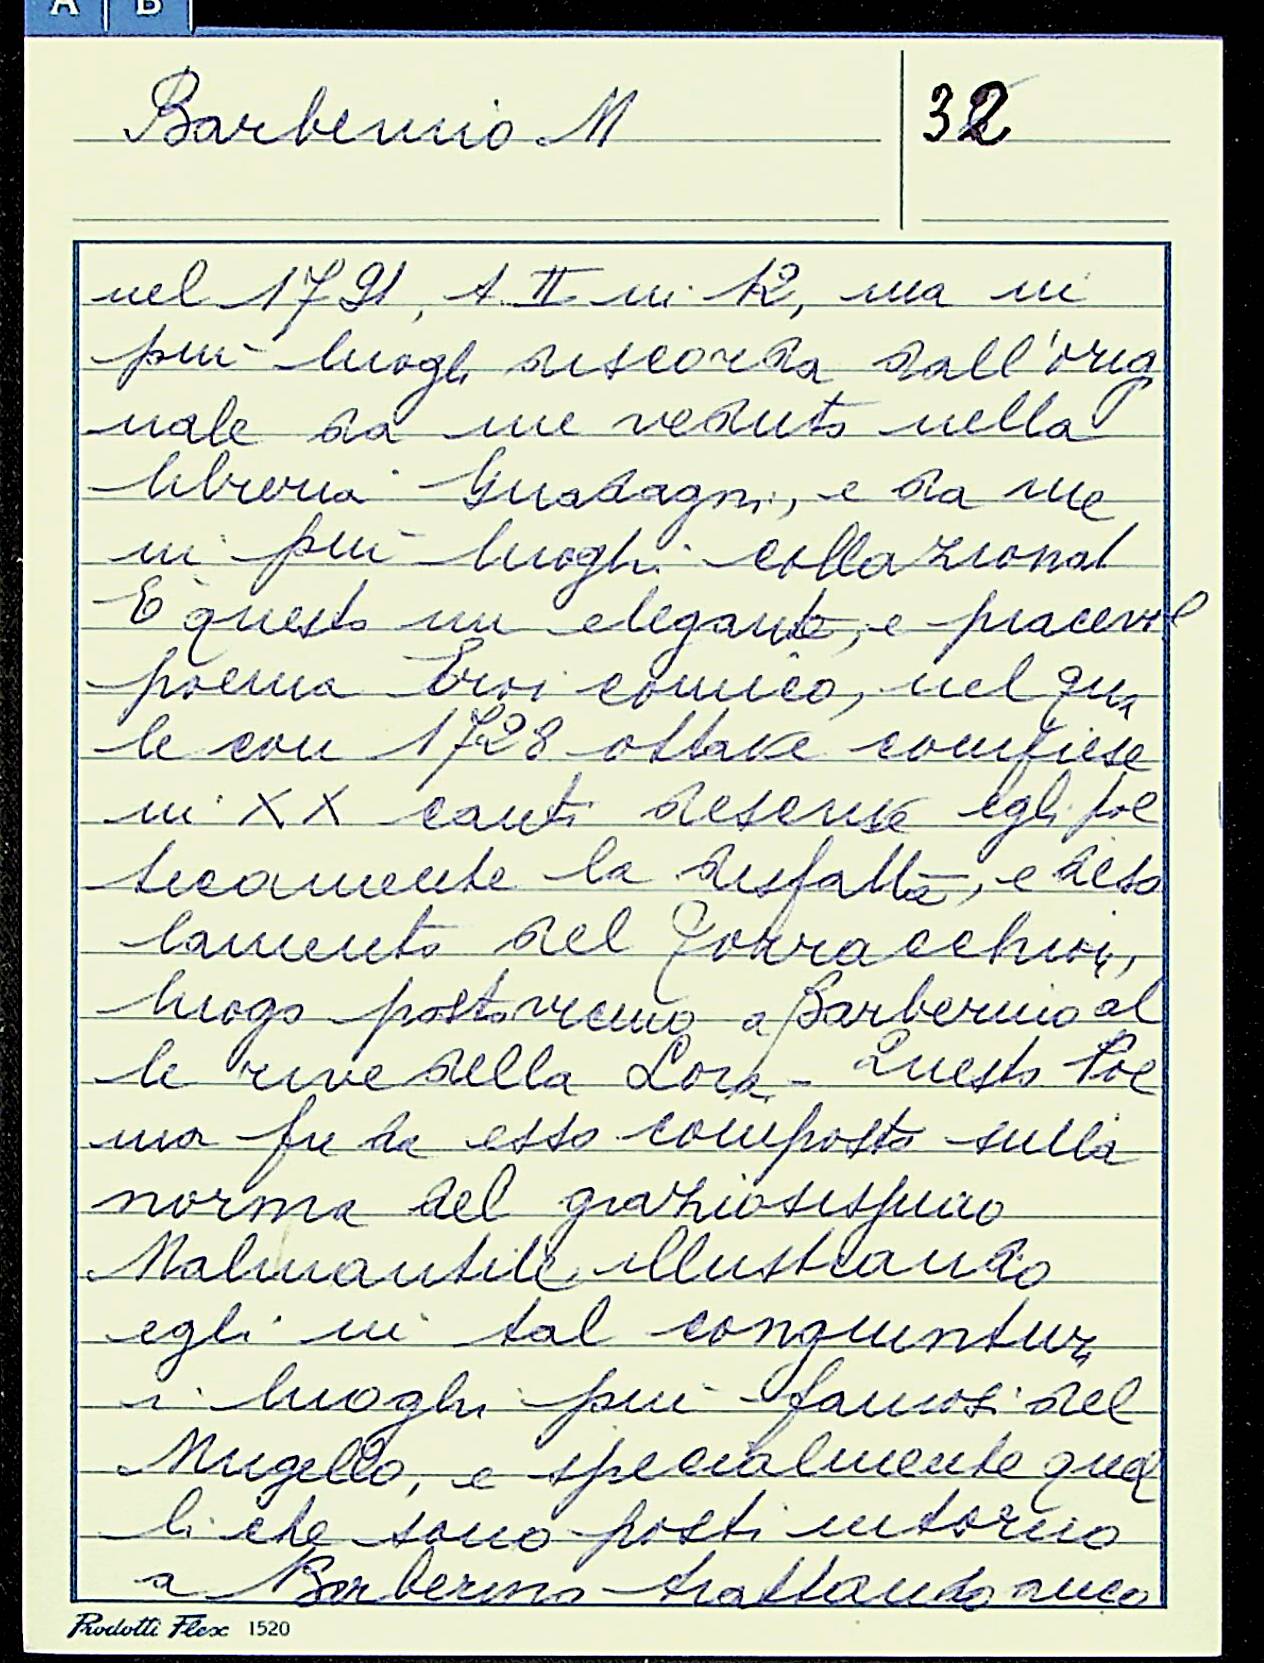 A B
Barberino M
32
nel 1791, t. II in 12, ma in
più luoghi discorda dall'orig
nale da me veduto nella
libreria Guadagni, e da me
in più luoghi collazionat
È questo un elegante, e piacevol
poema Eroi comico, nel qua
le con 1728 ottave comprese
in XX canti descrive egli poe
ticamente la disfatta, e deso
lamento del Torracchion,
luogo posto vicino a Barberino al
le rive della Lora - Questo Poe
ma fu da esso composto sulla
norma del graziosissimo
Malmantile, illustrando
egli in tal congiuntur
i luoghi più famosi del
Mugello, e specialmente quel
li che sono posti intorno
a Barberino trattando anco
Prodotti Flex 1520